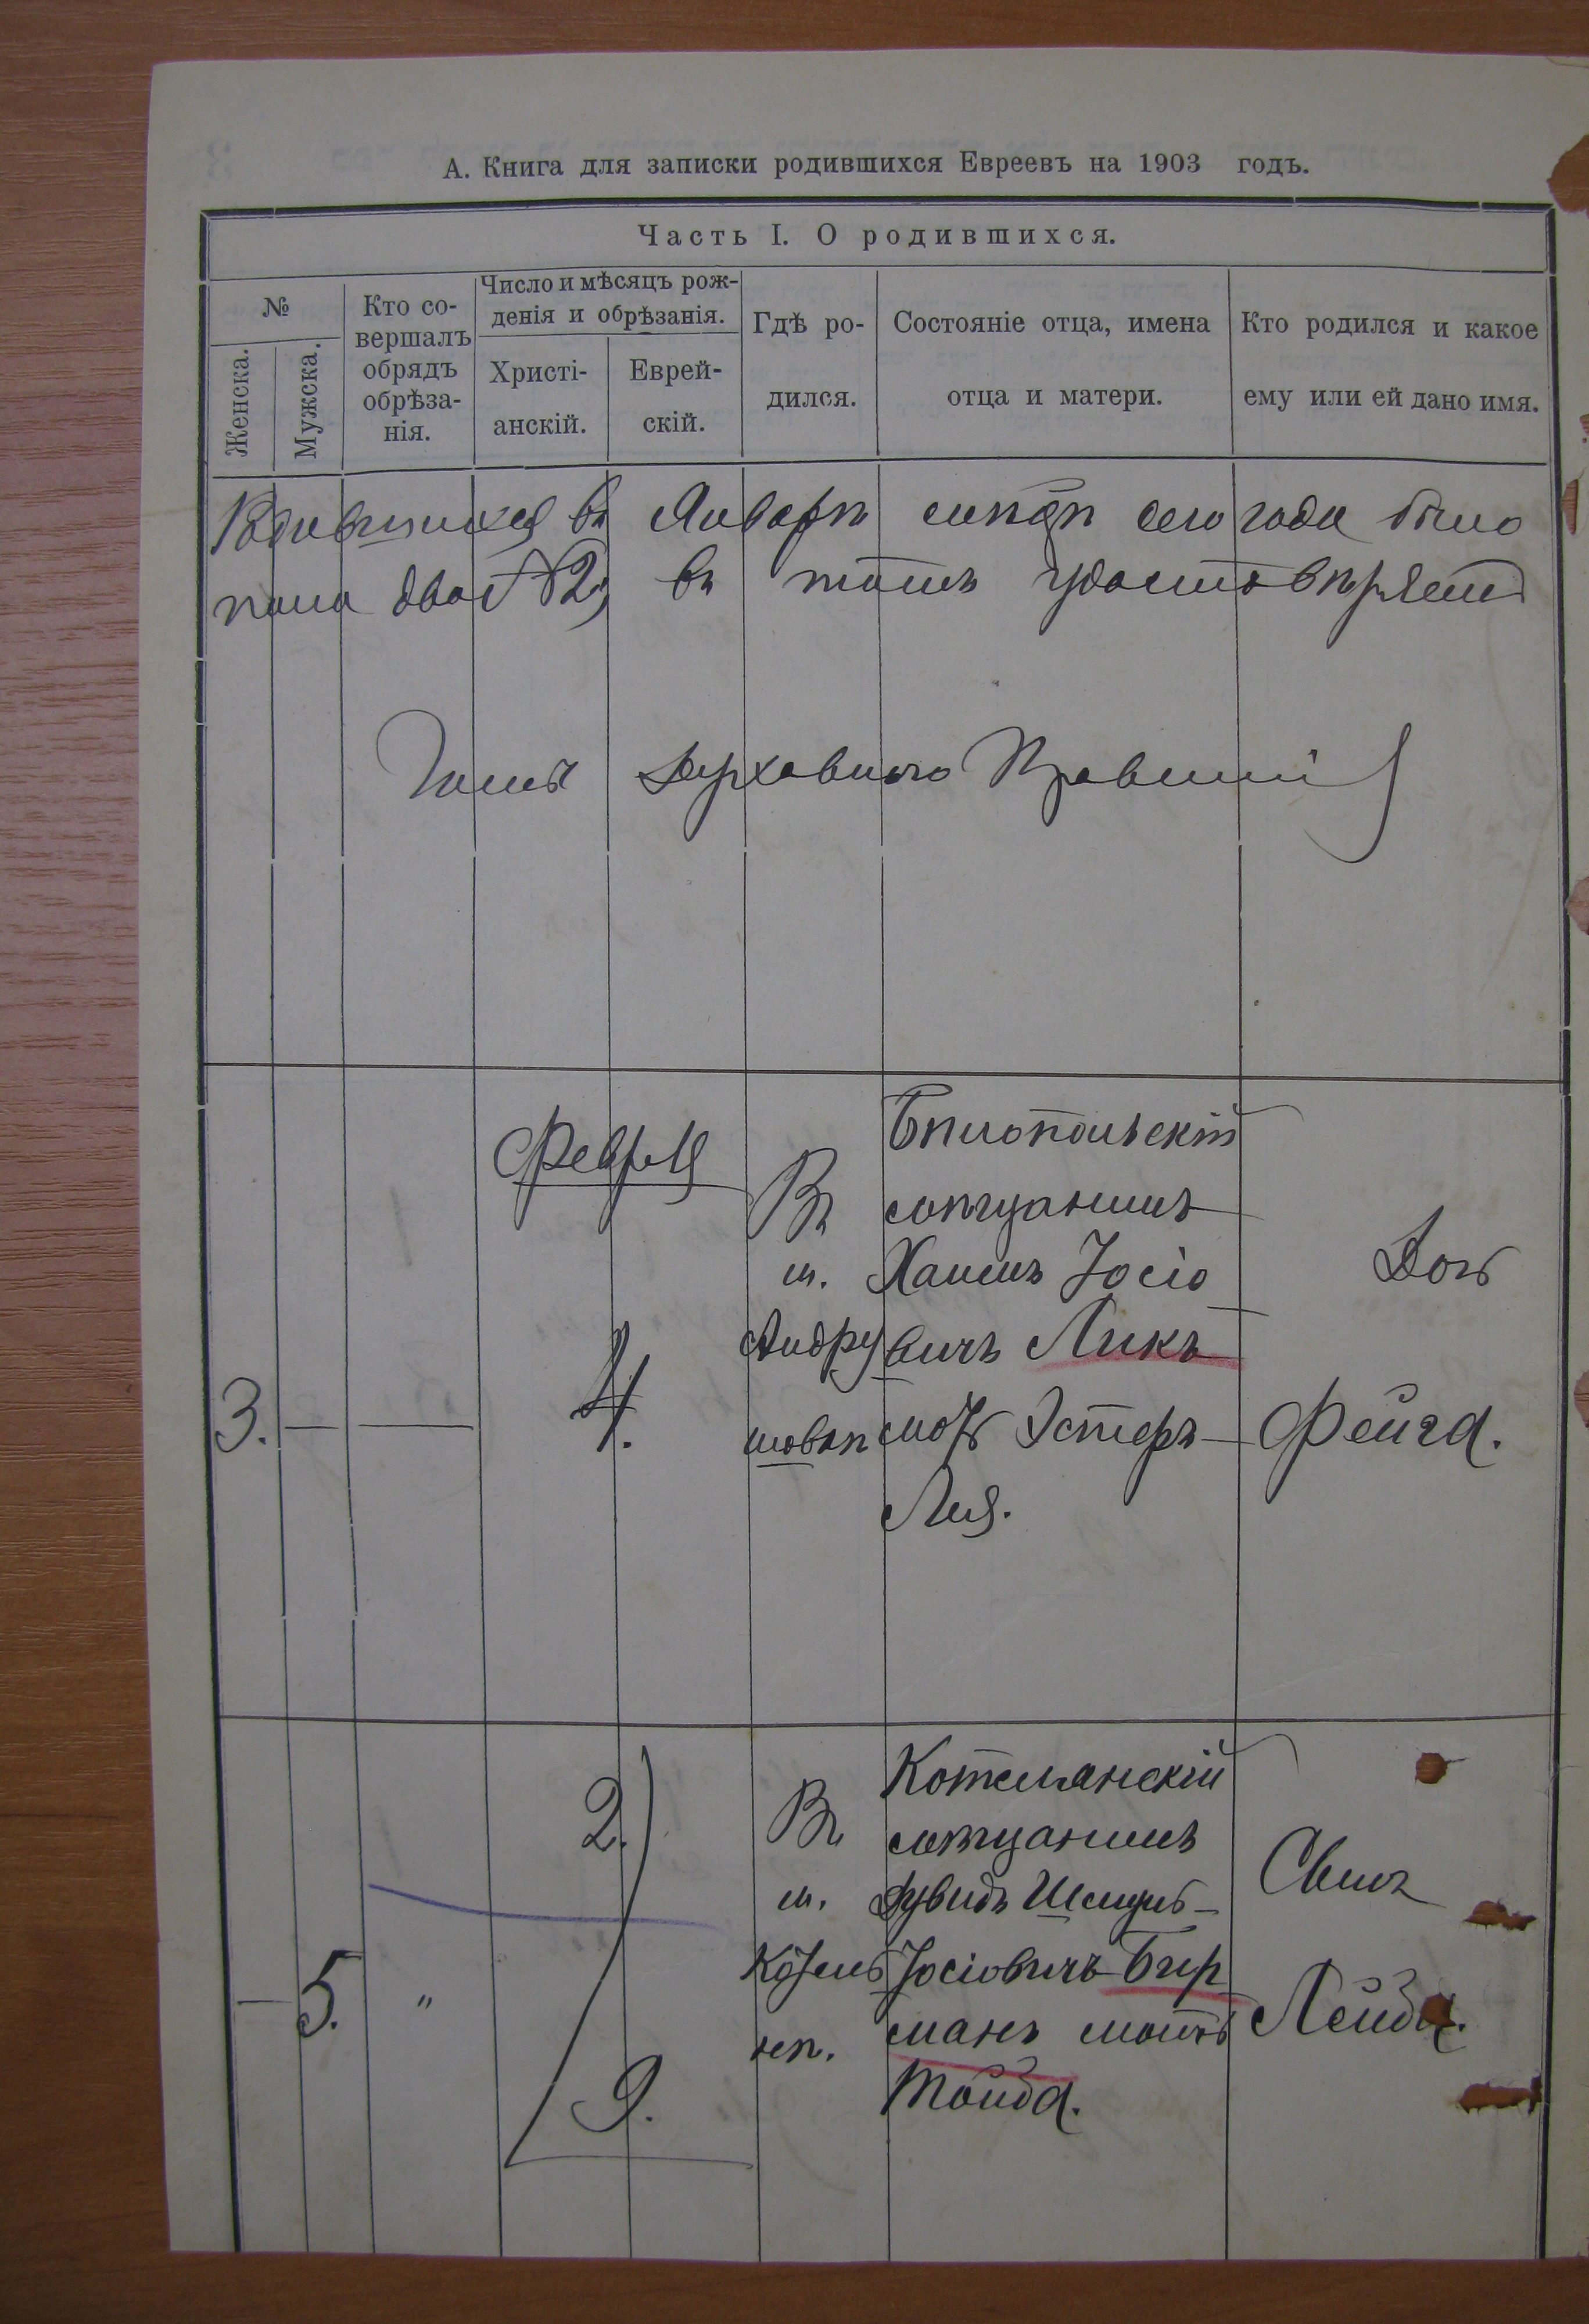 А. Книга для записки родившихся Евреевъ на 1903 годъ.
Часть I. О родившихся.
№
Женска.
Мужска.
Кто со-
вершалъ
обрядъ
обрѣза-
нія.
Число и мѣсяцъ рож-
денія и обрѣзанія.
Христі-
анскій.
Еврей-
скій.
Гдѣ ро-
дился.
Состояніе отца, имена
отца и матери.
Кто родился и какое
ему или ей дано имя.
Родившихся въ Январѣ сего года было
пола два №2, въ томъ удостовѣряетъ
Членъ Духовнаго Правленія
3.
—
—
Февраля
4.
Въ
м.
Андру
шовкѣ
Бѣлопольскій
мѣщанинъ
Хаимъ Іосіо
вичъ Ликъ
мать Эстеръ
Лия.
Дочь
Фейга.
—
5.
"
2.
9.
Въ
м.
нѣ.
Котельянскій
мѣщанинъ
Дувидъ
Іосіовичъ Бир
манъ мать
Тойба.
Сынъ
Лейба.